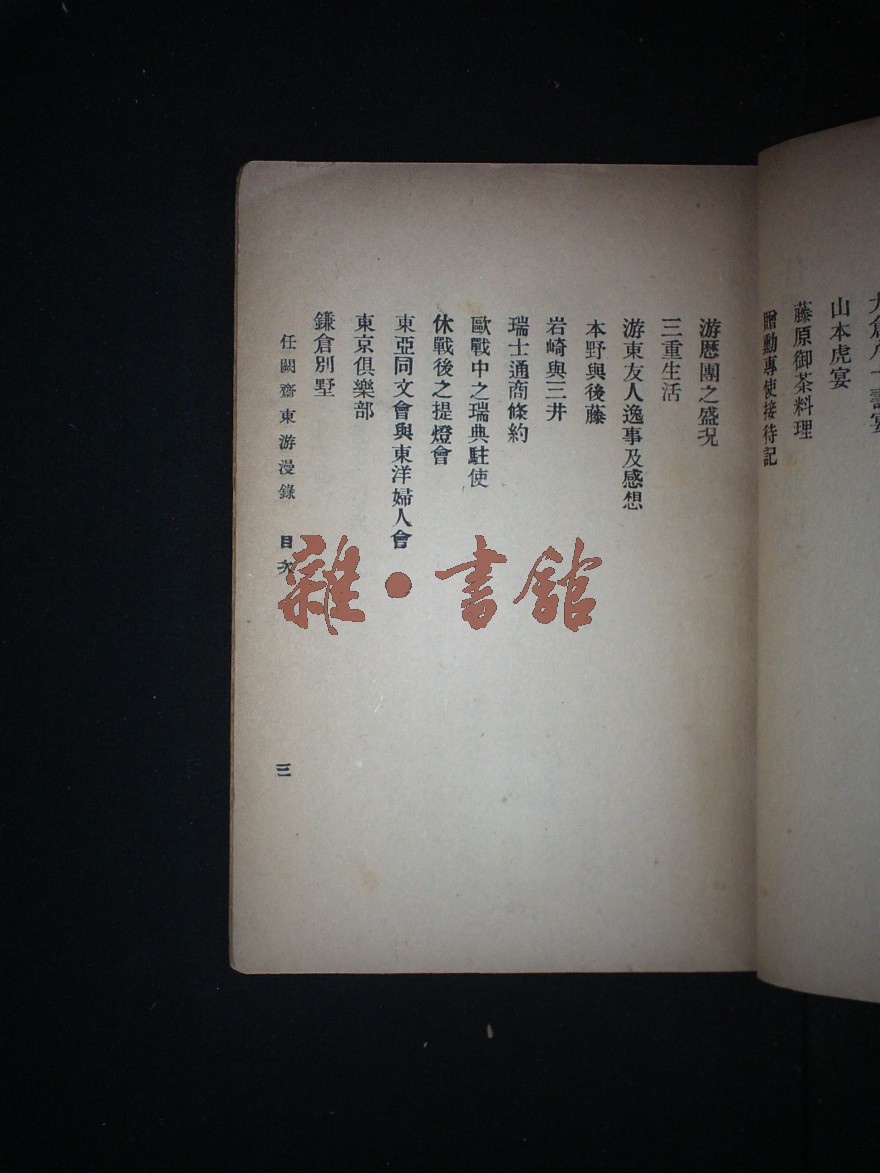 山本虎宴
藤原御茶料理
贈勳專使接待記
游歷團之盛况
三重生活
游東友人逸事及感想
本野與後藤
岩崎與三井
瑞士通商條約
歐戰中之瑞典駐使
休戰後之提燈會
東亞同文會與東洋婦人會
東京俱樂部
鎌倉別墅
任闕齋東游漫錄 目次 三
雜·書館